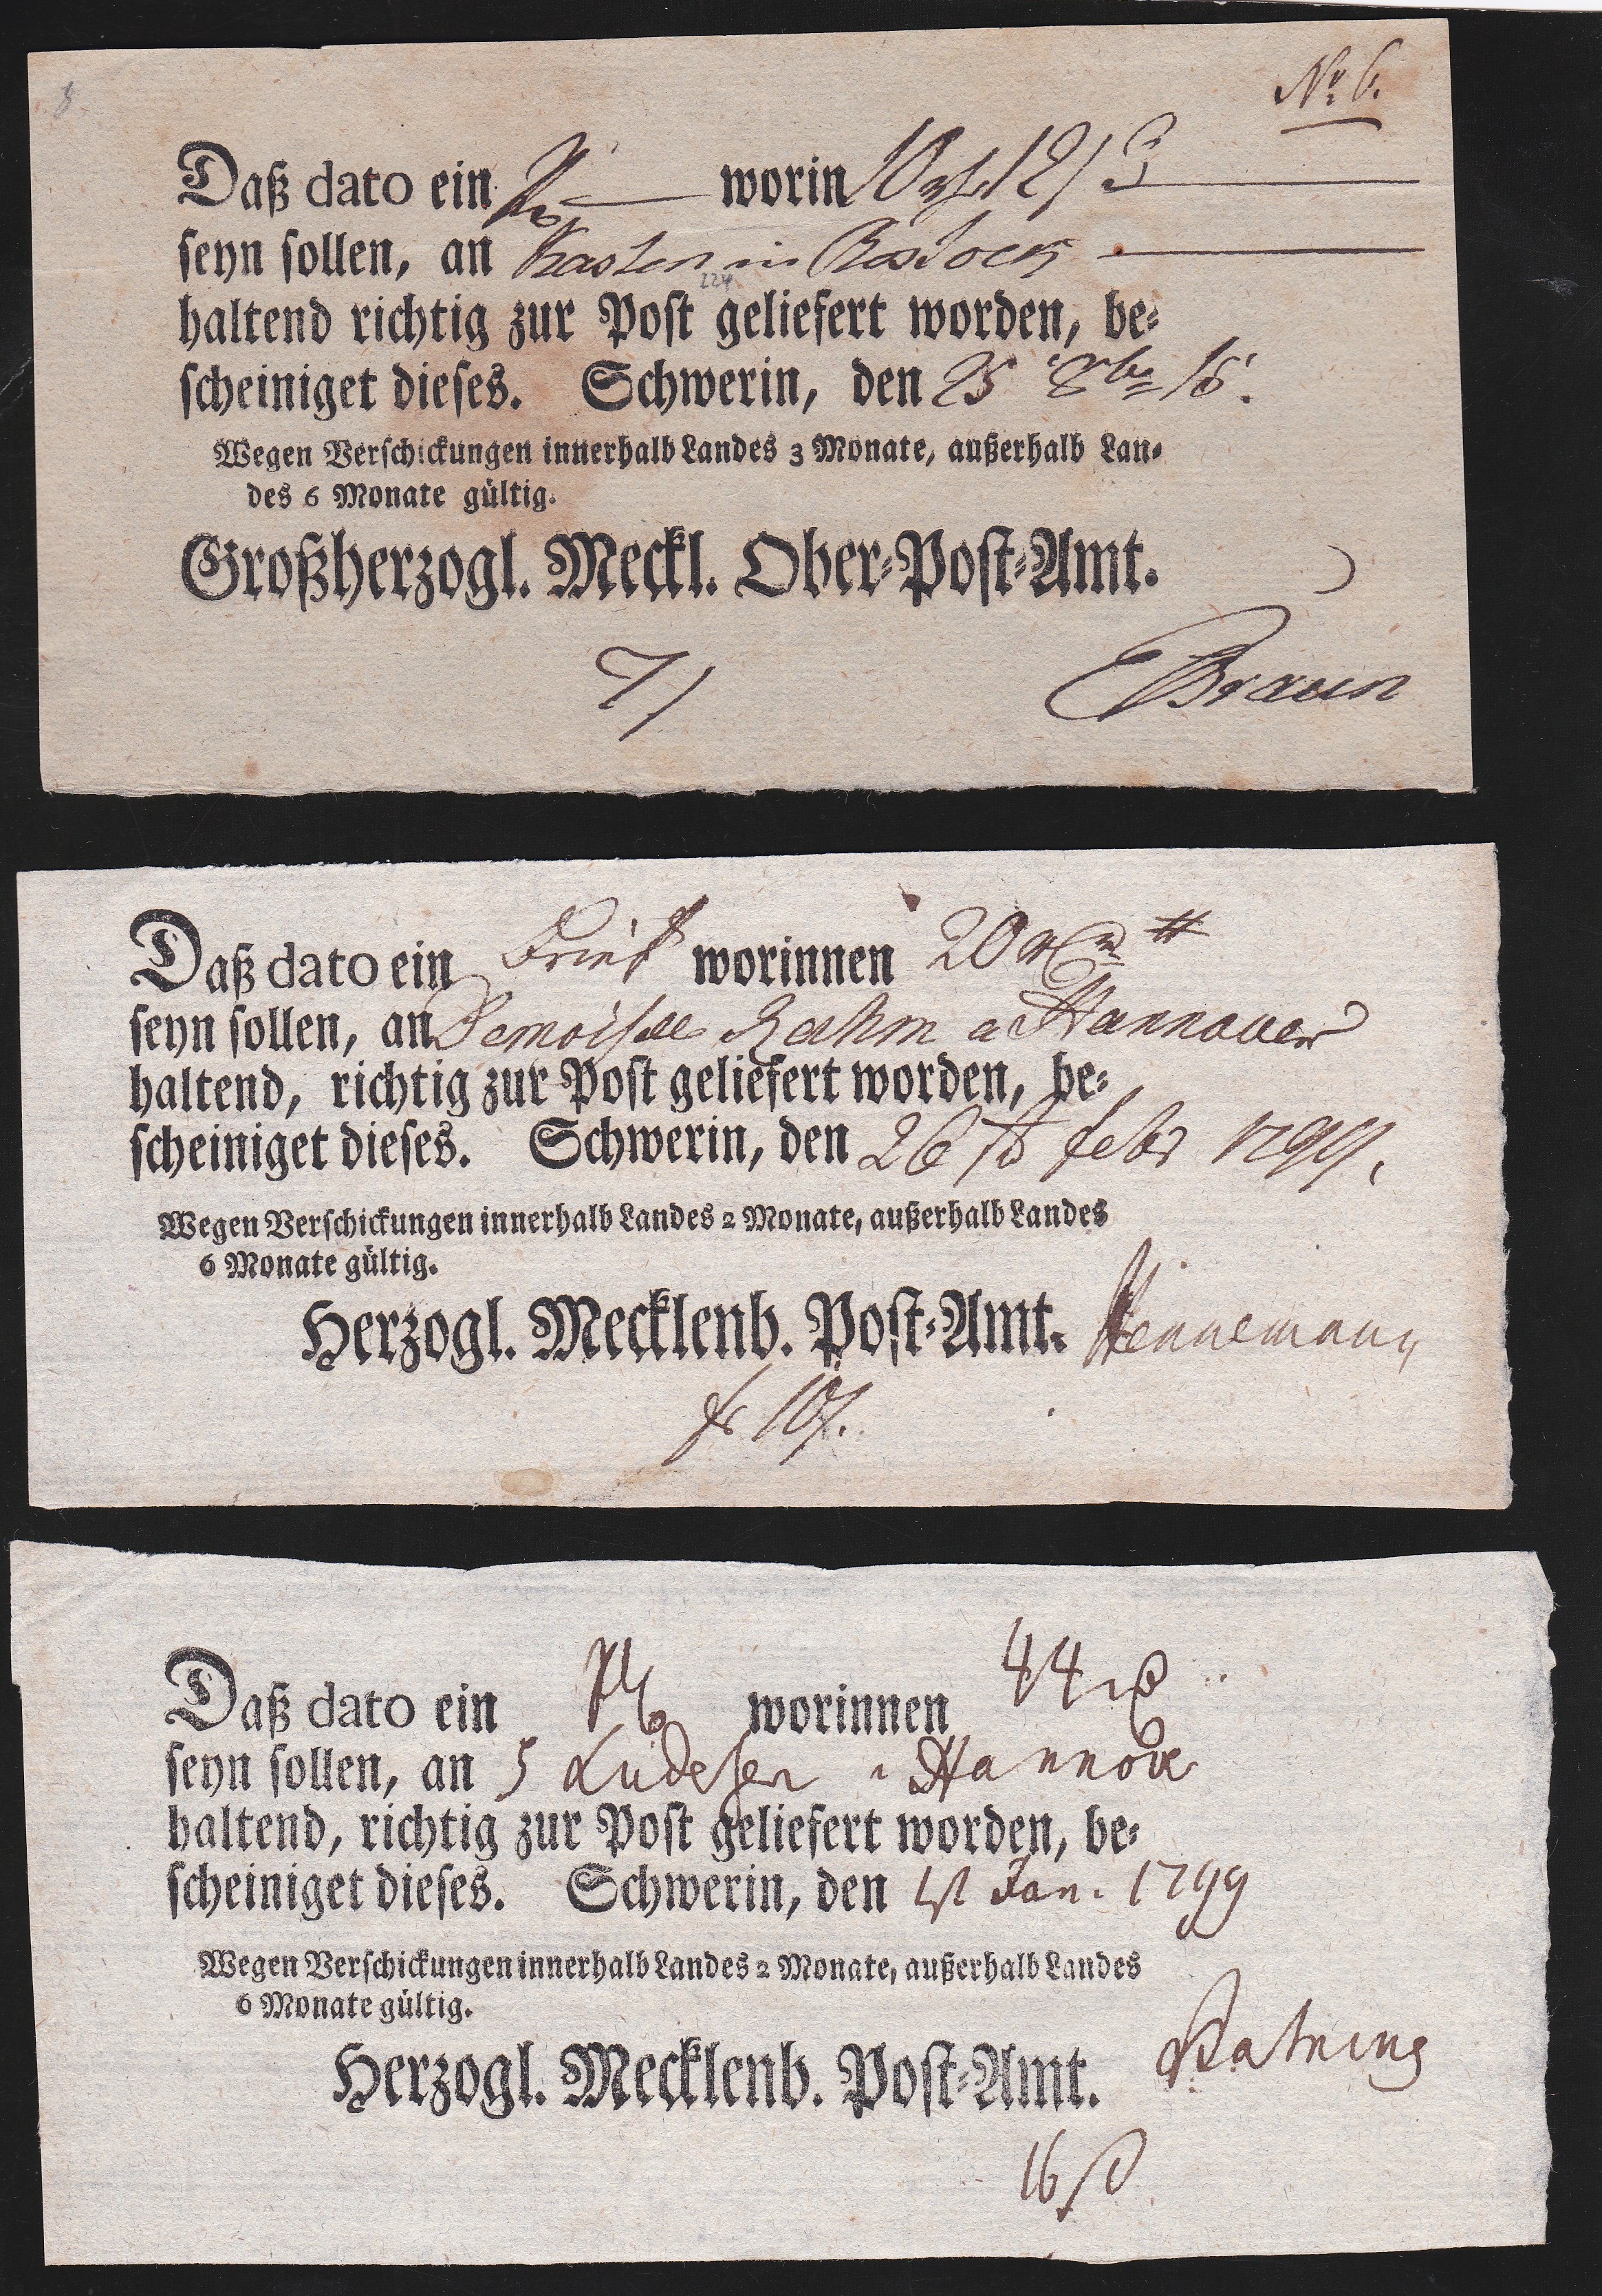 No 6.
Daß dato ein worin
seyn sollen, an Kasten in Rostock
224
haltend richtig zur Post geliefert worden, be⸗
scheiniget dieses. Schwerin, den 25 8br 16.
Wegen Verschickungen innerhalb Landes 3 Monate, außerhalb Lan⸗
des 6 Monate gültig.
Großherzogl. Meckl. Ober⸗Post⸗Amt.
7/ EBraun
Daß dato ein Brief worinnen 20
seyn sollen, an Demoiselle Rahm a Hannover
haltend, richtig zur Post geliefert worden, be⸗
scheiniget dieses. Schwerin, den 26 st febr 1799.
Wegen Verschickungen innerhalb Landes 2 Monate, außerhalb Landes
6 Monate gültig.
Herzogl. Mecklenb. Post⸗Amt. Hennemann
fr 10
Daß dato ein worinnen 44
seyn sollen, an a Hannover
haltend, richtig zur Post geliefert worden, be⸗
scheiniget dieses. Schwerin, den 1st Jan. 1799
Wegen Verschickungen innerhalb Landes 2 Monate, außerhalb Landes
6 Monate gültig.
Herzogl. Mecklenb. Post⸗Amt.
16 ß